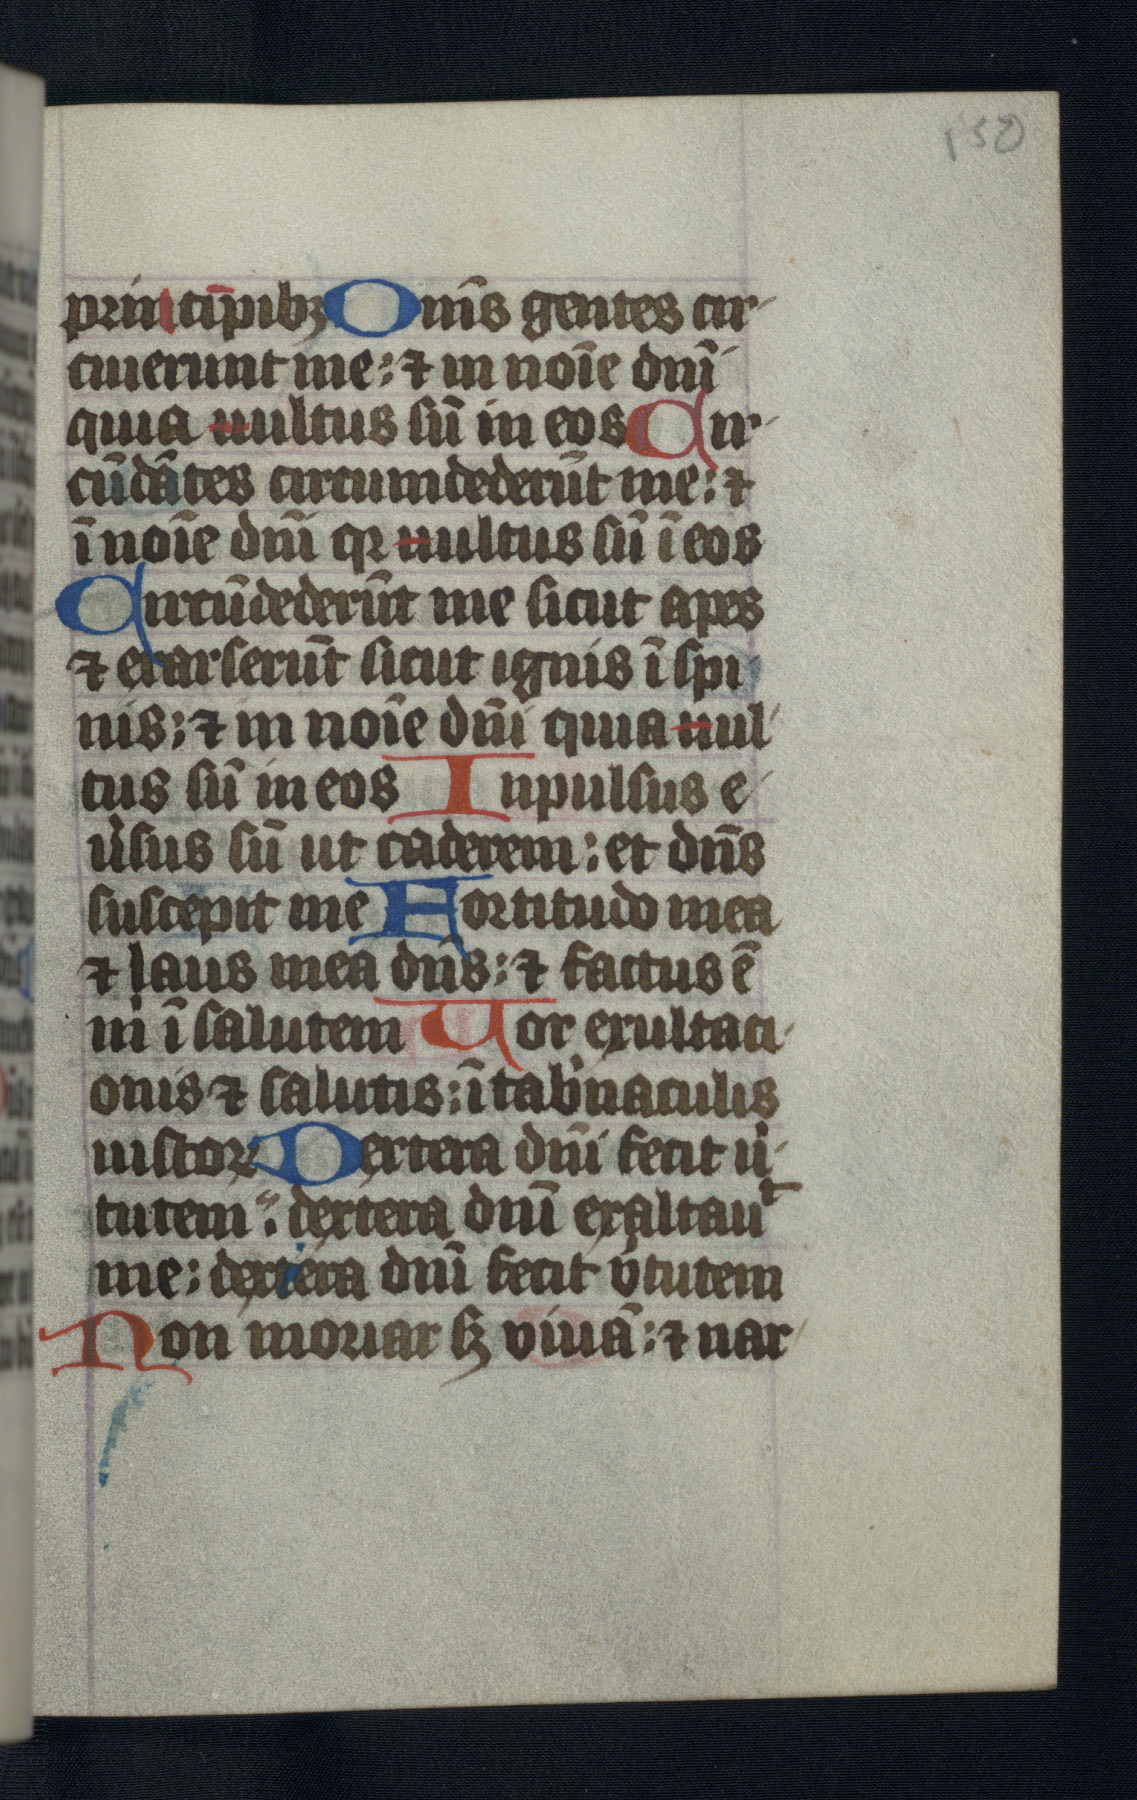 150
prin cīpibꝫ Om̄s gentes cir-
cuierunt me: ⁊ in noīe dn̄i
quia uultus sū in eos Cir-
cūdātes circumdederūt me: ⁊
ī noīe dn̄i qꝛ uultus sū ī eos
Circūdederūt me sicut apes
⁊ exarserūt sicut ignis ī spi
nis: ⁊ in noīe dn̄i quia uul-
tus sū in eos Inpulsus e-
u̾sus sū ut caderem: et dn̄s
suscepit me Fortitudo mea
⁊ laus mea dn̄s: ⁊ factus ē
m̄ ī salutem Uox exultaci-
onis ⁊ salutis: ī tab̾naculis
iustoꝝ Dextera dn̄i fecit ui̾-
tutem: dextera dn̄i exaltauᵗ
me: dextera dn̄i fecit v̾tutem
Non moriar sꝫ viuā: ⁊ nar-